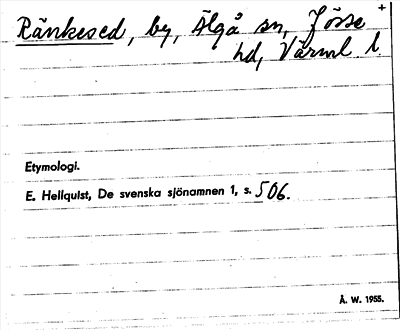 Ränkesed, by, Älgå sn, Jösse +
hd, Värml l.
Etymologi.
E. Hellquist, De svenska sjönamnen 1, s. 506.
Å. W. 1955.